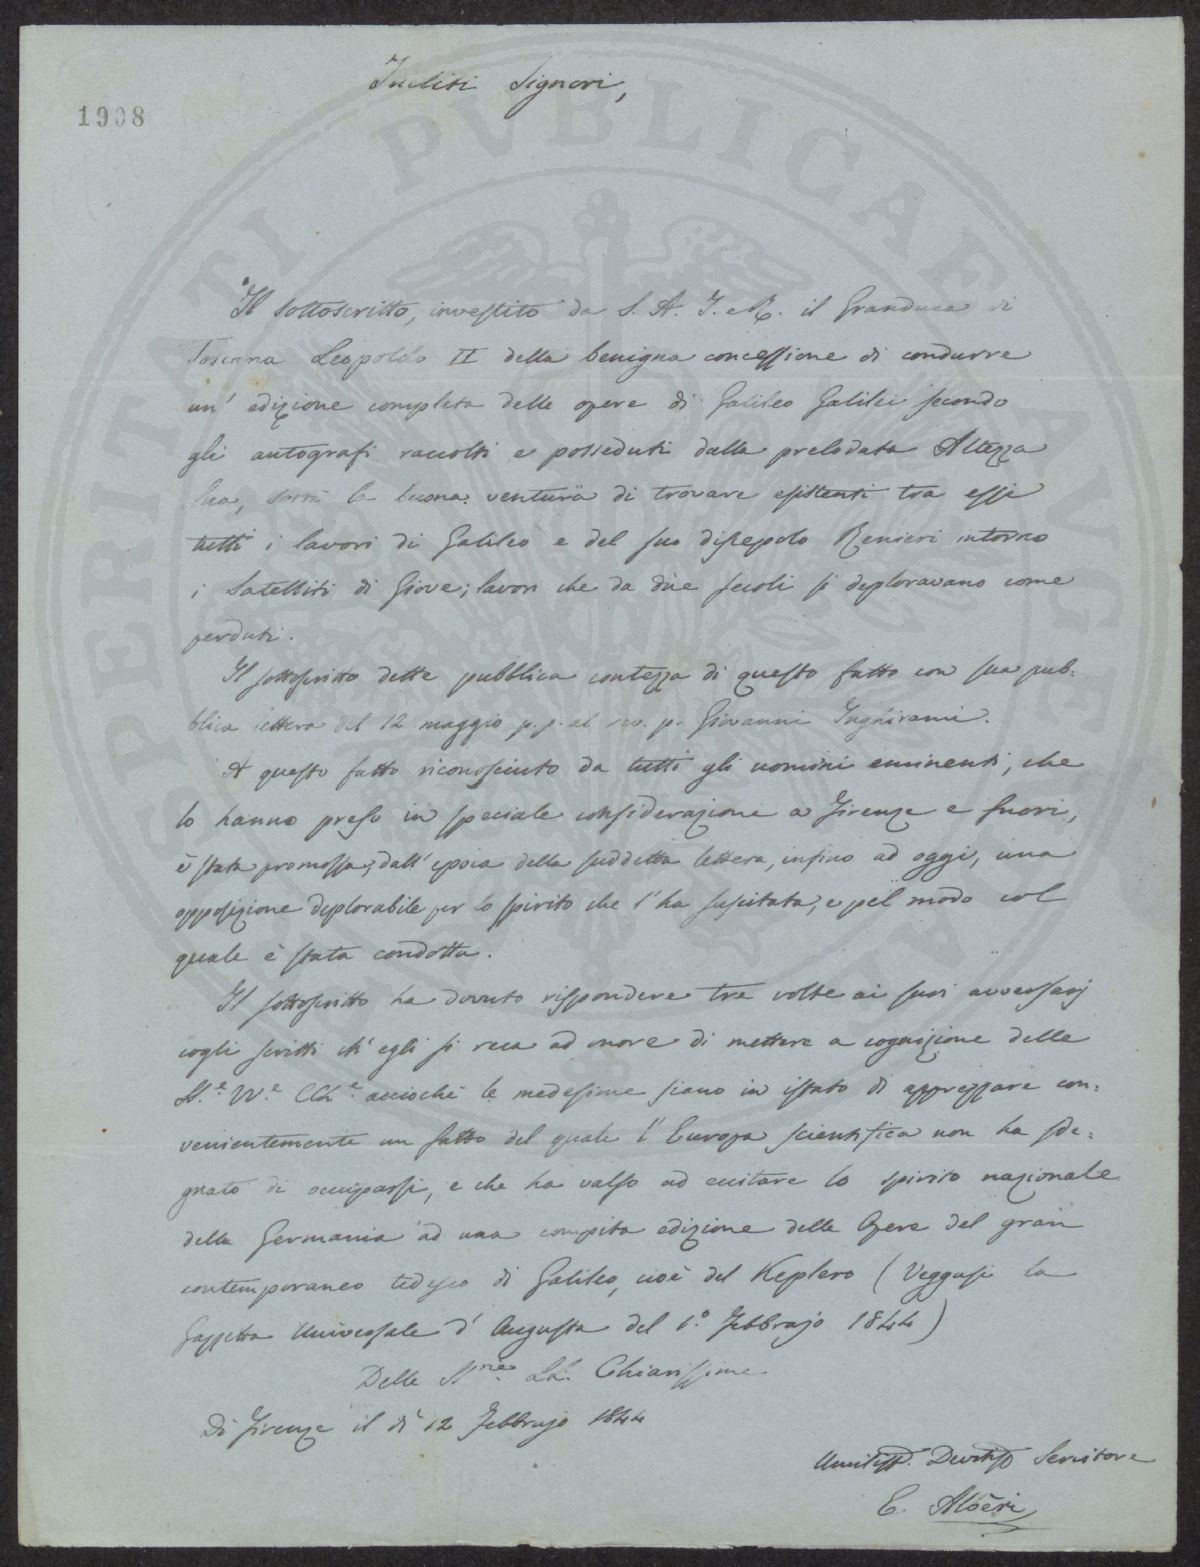 Incliti Signori,
1908
Il sottoscritto, investito da S. A. I. e R. il Granduca di
Toscana Leopoldo II della benigna concessione di condurre
un' edizione completa delle opere di Galileo Galilei secondo
gli autografi raccolti e posseduti dalla prelodata Altezza
Sua, sortì la buona ventura di trovare esistenti tra essi
tutti i lavori di Galileo e del suo discepolo Renieri intorno
i Satelliti di Giove; lavori che da due secoli si deploravano come
perduti.
Il sottoscritto dette pubblica contezza di questo fatto con sua pub=
blica lettera del 12 maggio p. p. al rev. p. Giovanni Inghirami.
A questo fatto riconosciuto da tutti gli uomini eminenti, che
lo hanno preso in speciale considerazione a Firenze e fuori,
è stata promossa, dall' epoca della suddetta lettera, infino ad oggi, una
opposizione deplorabile per lo spirito che l' ha suscitata, e pel modo col
quale è stata condotta.
Il sottoscritto ha dovuto rispondere tre volte ai suoi avversarj
cogli scritti ch' egli si reca ad onore di mettere a cognizione delle
SS.e VV.e CCh.e acciochè le medesime siano in istato di apprezzare con=
venientemente un fatto del quale l' Europa scientifica non ha sde=
gnato di occuparsi, e che ha valso ad eccitare lo spirito nazionale
della Germania ad una compita edizione delle Opere del gran
contemporaneo tedesco di Galileo, cioè del Keplero (Veggasi la
Gazzetta Universale d' Augusta del 1.° Febbrajo 1844)
Delle SS.rie LL. Chiarissime
Di Firenze il dì 12 Febbrajo 1844
Umiliss. Devotiss Servitore
E. Albèri
PROSPERITATI PVBLICAE AVGENDAE